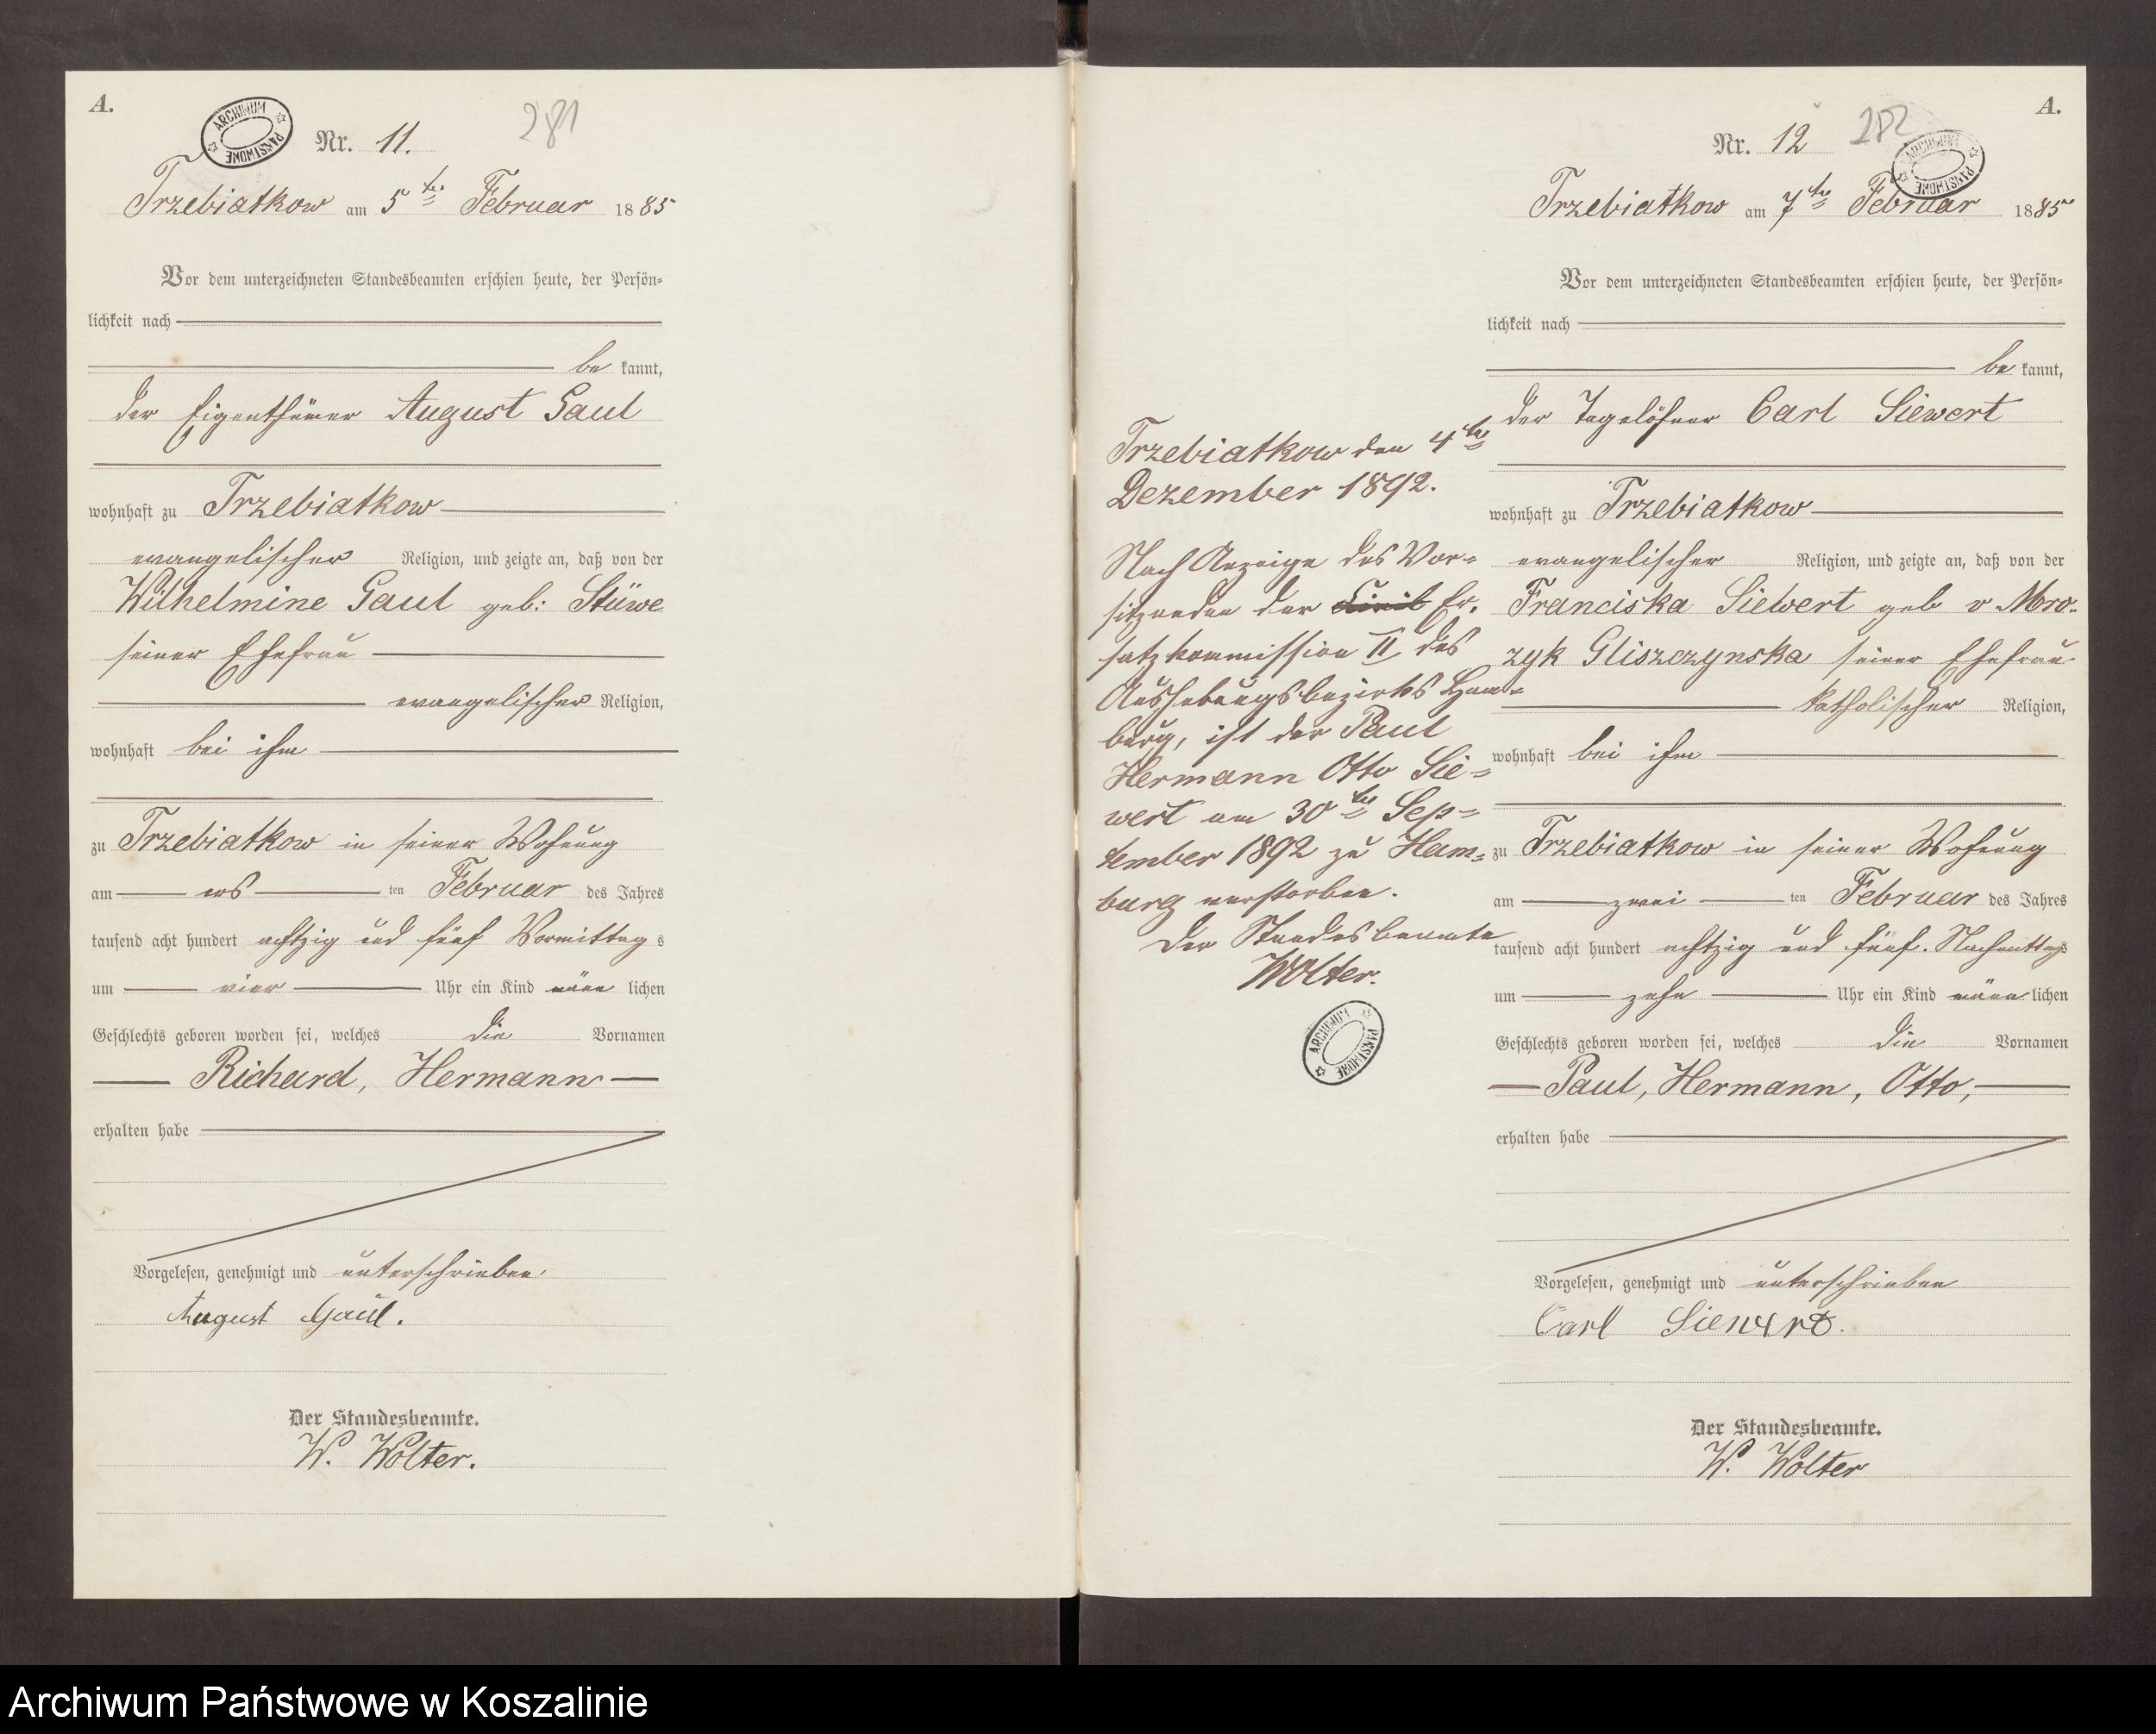 A.
ARCHIWUM PAŃSTWOWE
Nr. 11.
281
Trzebiatkow am 5ten Februar 1885
Vor dem unterzeichneten Standesbeamten erschien heute, der Persön-
lichkeit nach
be kannt,
der Eigenthümer August Gaul
wohnhaft zu Trzebiatkow
evangelischer Religion, und zeigte an, daß von der
Wilhelmine Gaul geb: Stüwe
seiner Ehefrau
evangelischer Religion,
wohnhaft bei ihm
zu Trzebiatkow in seiner Wohnung
am ers ten Februar des Jahres
tausend acht hundert achtzig und fünf Vormittag s
um vier Uhr ein Kind männ lichen
Geschlechts geboren worden sei, welches die Vornamen
Richard, Hermann
erhalten habe
Vorgelesen, genehmigt und unterschrieben.
August Gaul.
Der Standesbeamte.
W. Wolter.
Trzebiatkow den 4ten
Dezember 1892.
Nach Anzeige des Vor-
sitzenden der Civil Er-
satzkommission II des
Aushebungsbezirks Ham-
burg, ist der Paul
Hermann Otto Sie-
wert am 30ten Sep-
tember 1892 zu Ham-
burg verstorben.
Der Standesbeamte
Wolter.
ARCHIWUM PAŃSTWOWE
A.
Nr. 12
282
ARCHIWUM PAŃSTWOWE
Trzebiatkow am 7ten Februar 1885
Vor dem unterzeichneten Standesbeamten erschien heute, der Persön-
lichkeit nach
be kannt,
der Tagelöhner Carl Siewert
wohnhaft zu Trzebiatkow
evangelischer Religion, und zeigte an, daß von der
Franciska Siewert geb v Mro-
zyk Gliszczynska seiner Ehefrau
katholischer Religion,
wohnhaft bei ihm
zu Trzebiatkow in seiner Wohnung
am zwei ten Februar des Jahres
tausend acht hundert achtzig und fünf. Nachmittags
um zehn Uhr ein Kind männ lichen
Geschlechts geboren worden sei, welches die Vornamen
Paul, Hermann, Otto,
erhalten habe
Vorgelesen, genehmigt und unterschrieben
Carl Siewert.
Der Standesbeamte.
W. Wolter
Archiwum Państwowe w Koszalinie